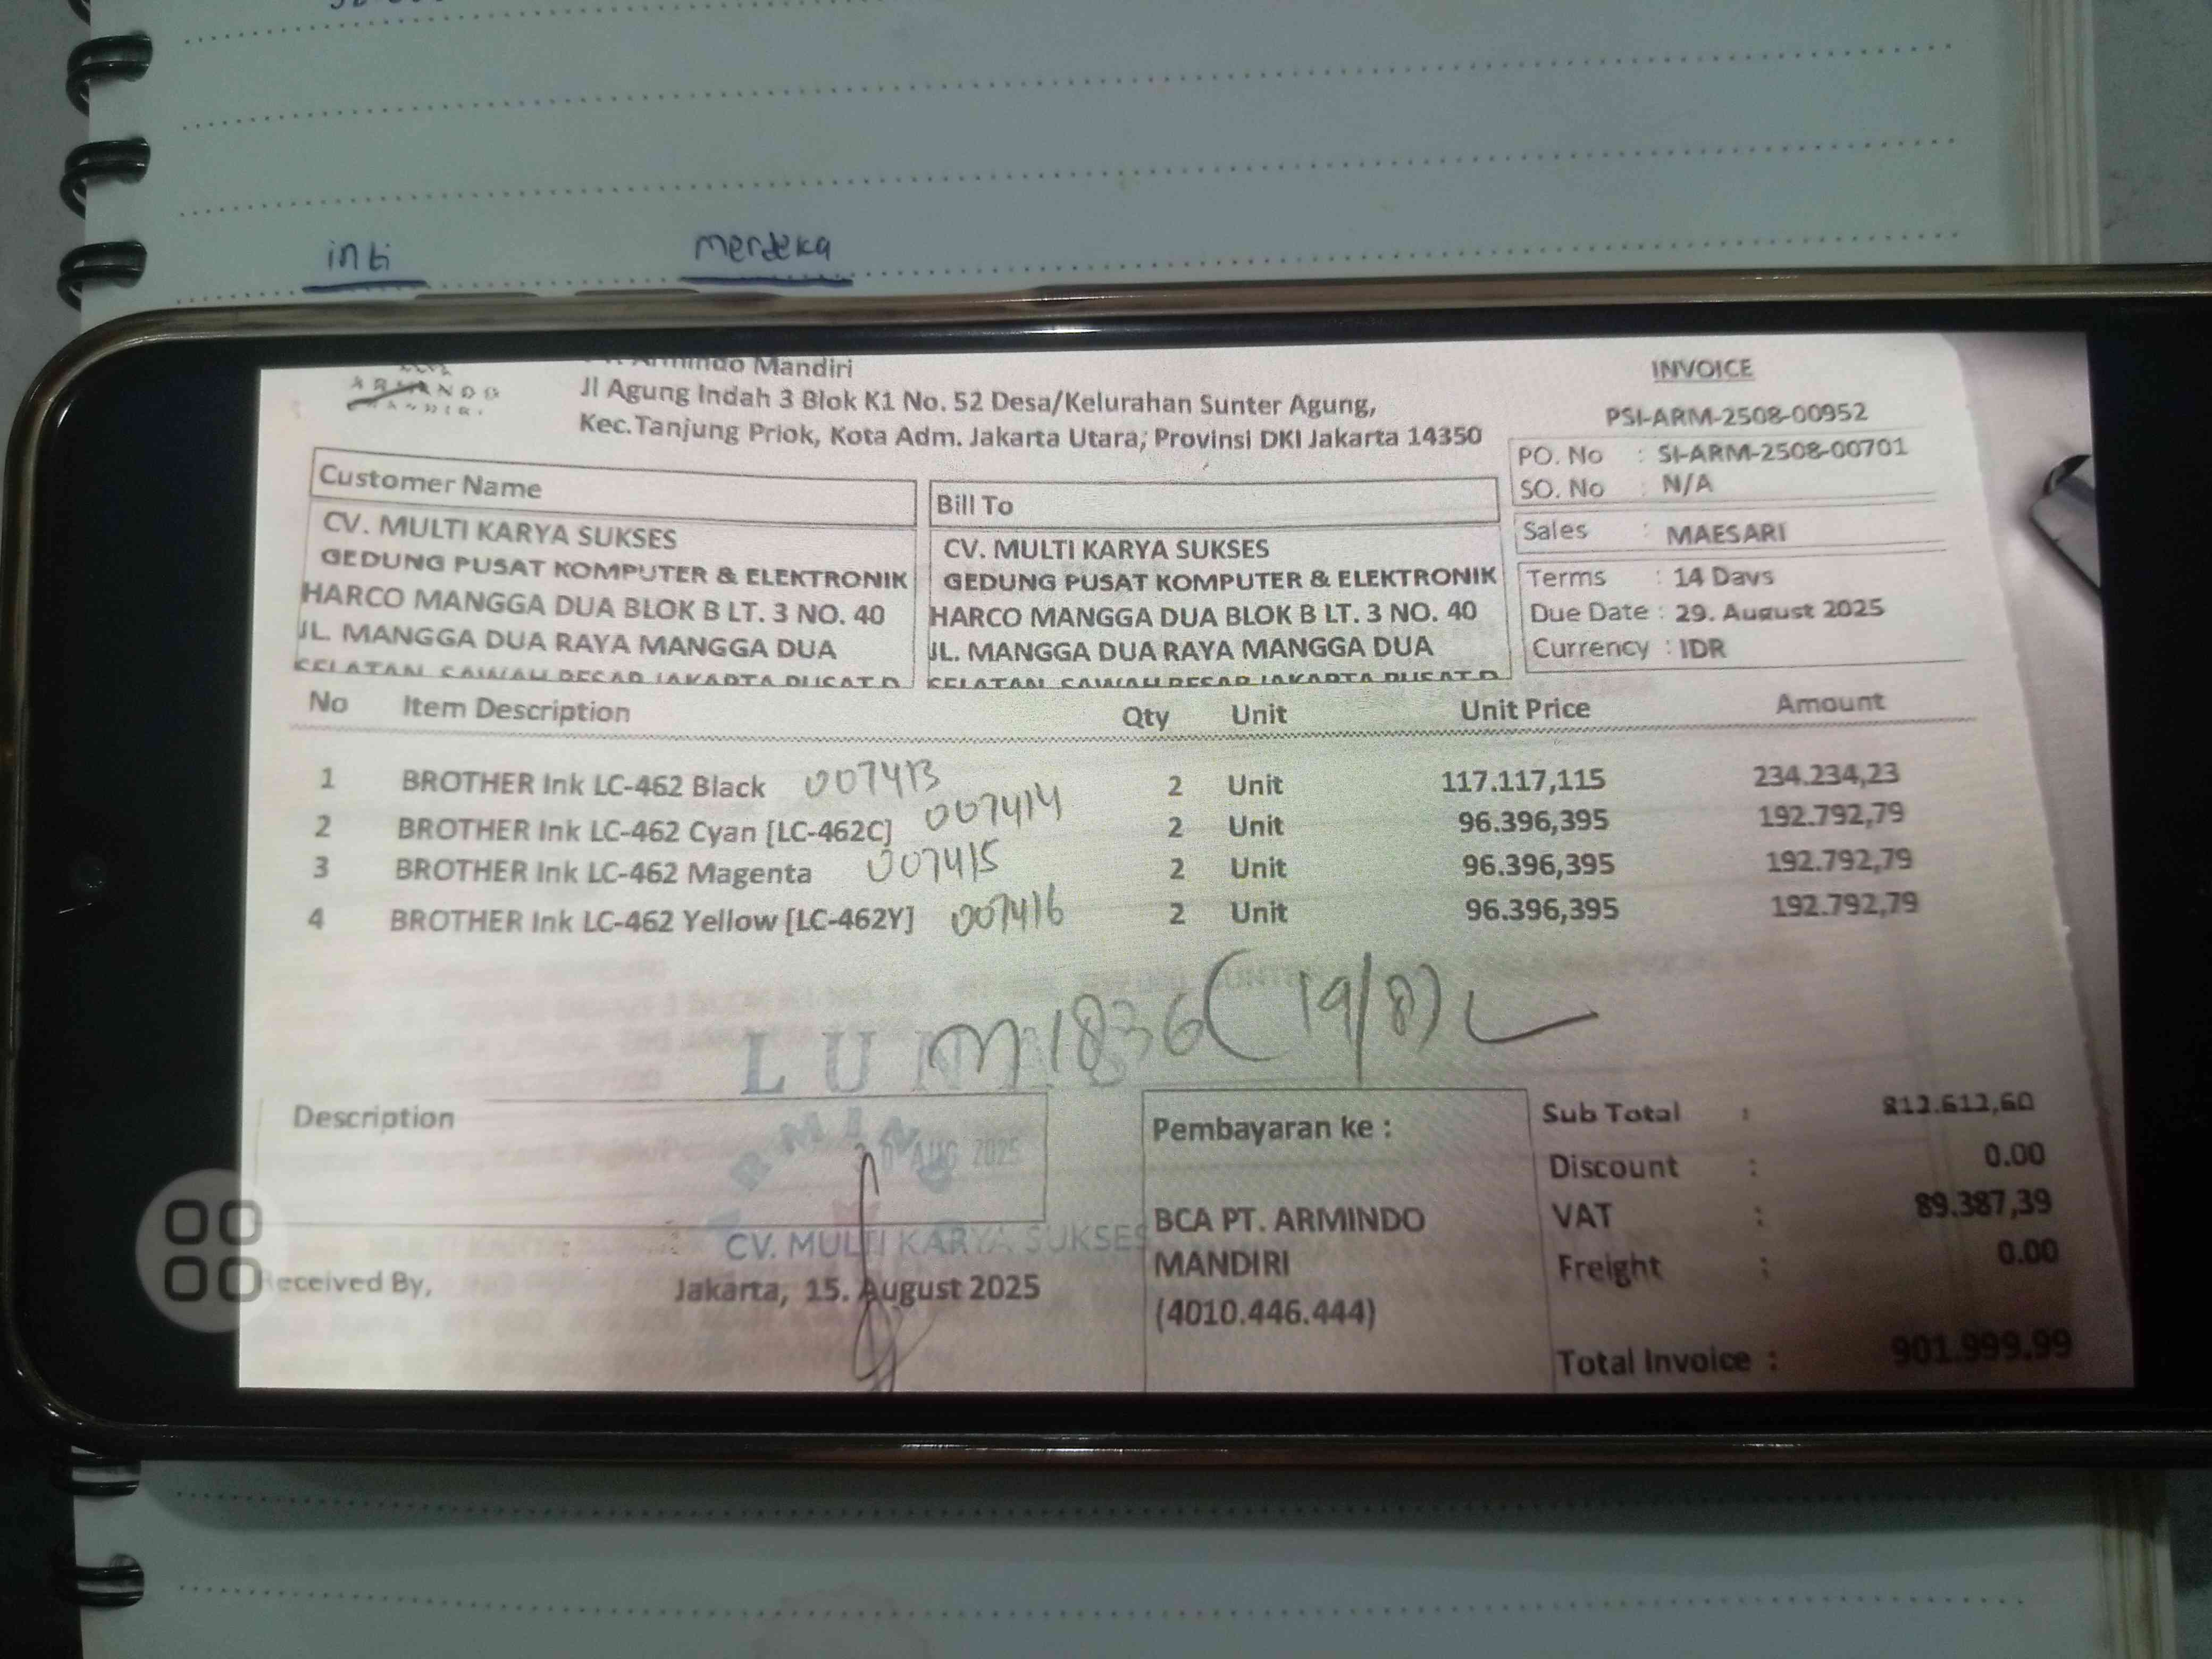 inti merdeka
Armindo Mandiri
Jl Agung Indah 3 Blok K1 No. 52 Desa/Kelurahan Sunter Agung,
Kec.Tanjung Priok, Kota Adm. Jakarta Utara, Provinsi DKI Jakarta 14350
INVOICE
PSI-ARM-2508-00952
PO. No : SI-ARM-2508-00701
SO. No : N/A
Sales : MAESARI
Terms : 14 Days
Due Date : 29. August 2025
Currency : IDR
Customer Name
CV. MULTI KARYA SUKSES
GEDUNG PUSAT KOMPUTER & ELEKTRONIK
HARCO MANGGA DUA BLOK B LT. 3 NO. 40
JL. MANGGA DUA RAYA MANGGA DUA
SELATAN, SAWAH BESAR JAKARTA PUSAT D
Bill To
CV. MULTI KARYA SUKSES
GEDUNG PUSAT KOMPUTER & ELEKTRONIK
HARCO MANGGA DUA BLOK B LT. 3 NO. 40
JL. MANGGA DUA RAYA MANGGA DUA
SELATAN, SAWAH BESAR JAKARTA PUSAT D
No Item Description Qty Unit Unit Price Amount
1 BROTHER Ink LC-462 Black 007413 2 Unit 117.117,115 234.234,23
2 BROTHER Ink LC-462 Cyan [LC-462C] 007414 2 Unit 96.396,395 192.792,79
3 BROTHER Ink LC-462 Magenta 007415 2 Unit 96.396,395 192.792,79
4 BROTHER Ink LC-462 Yellow [LC-462Y] 007416 2 Unit 96.396,395 192.792,79
m1836 (19/8)
Description
AUG 2025
CV. MULTI KARYA SUKSES
Received By,
Jakarta, 15. August 2025
Pembayaran ke :
BCA PT. ARMINDO
MANDIRI
(4010.446.444)
Sub Total : 812.612,60
Discount : 0.00
VAT : 89.387,39
Freight : 0.00
Total Invoice : 901.999.99